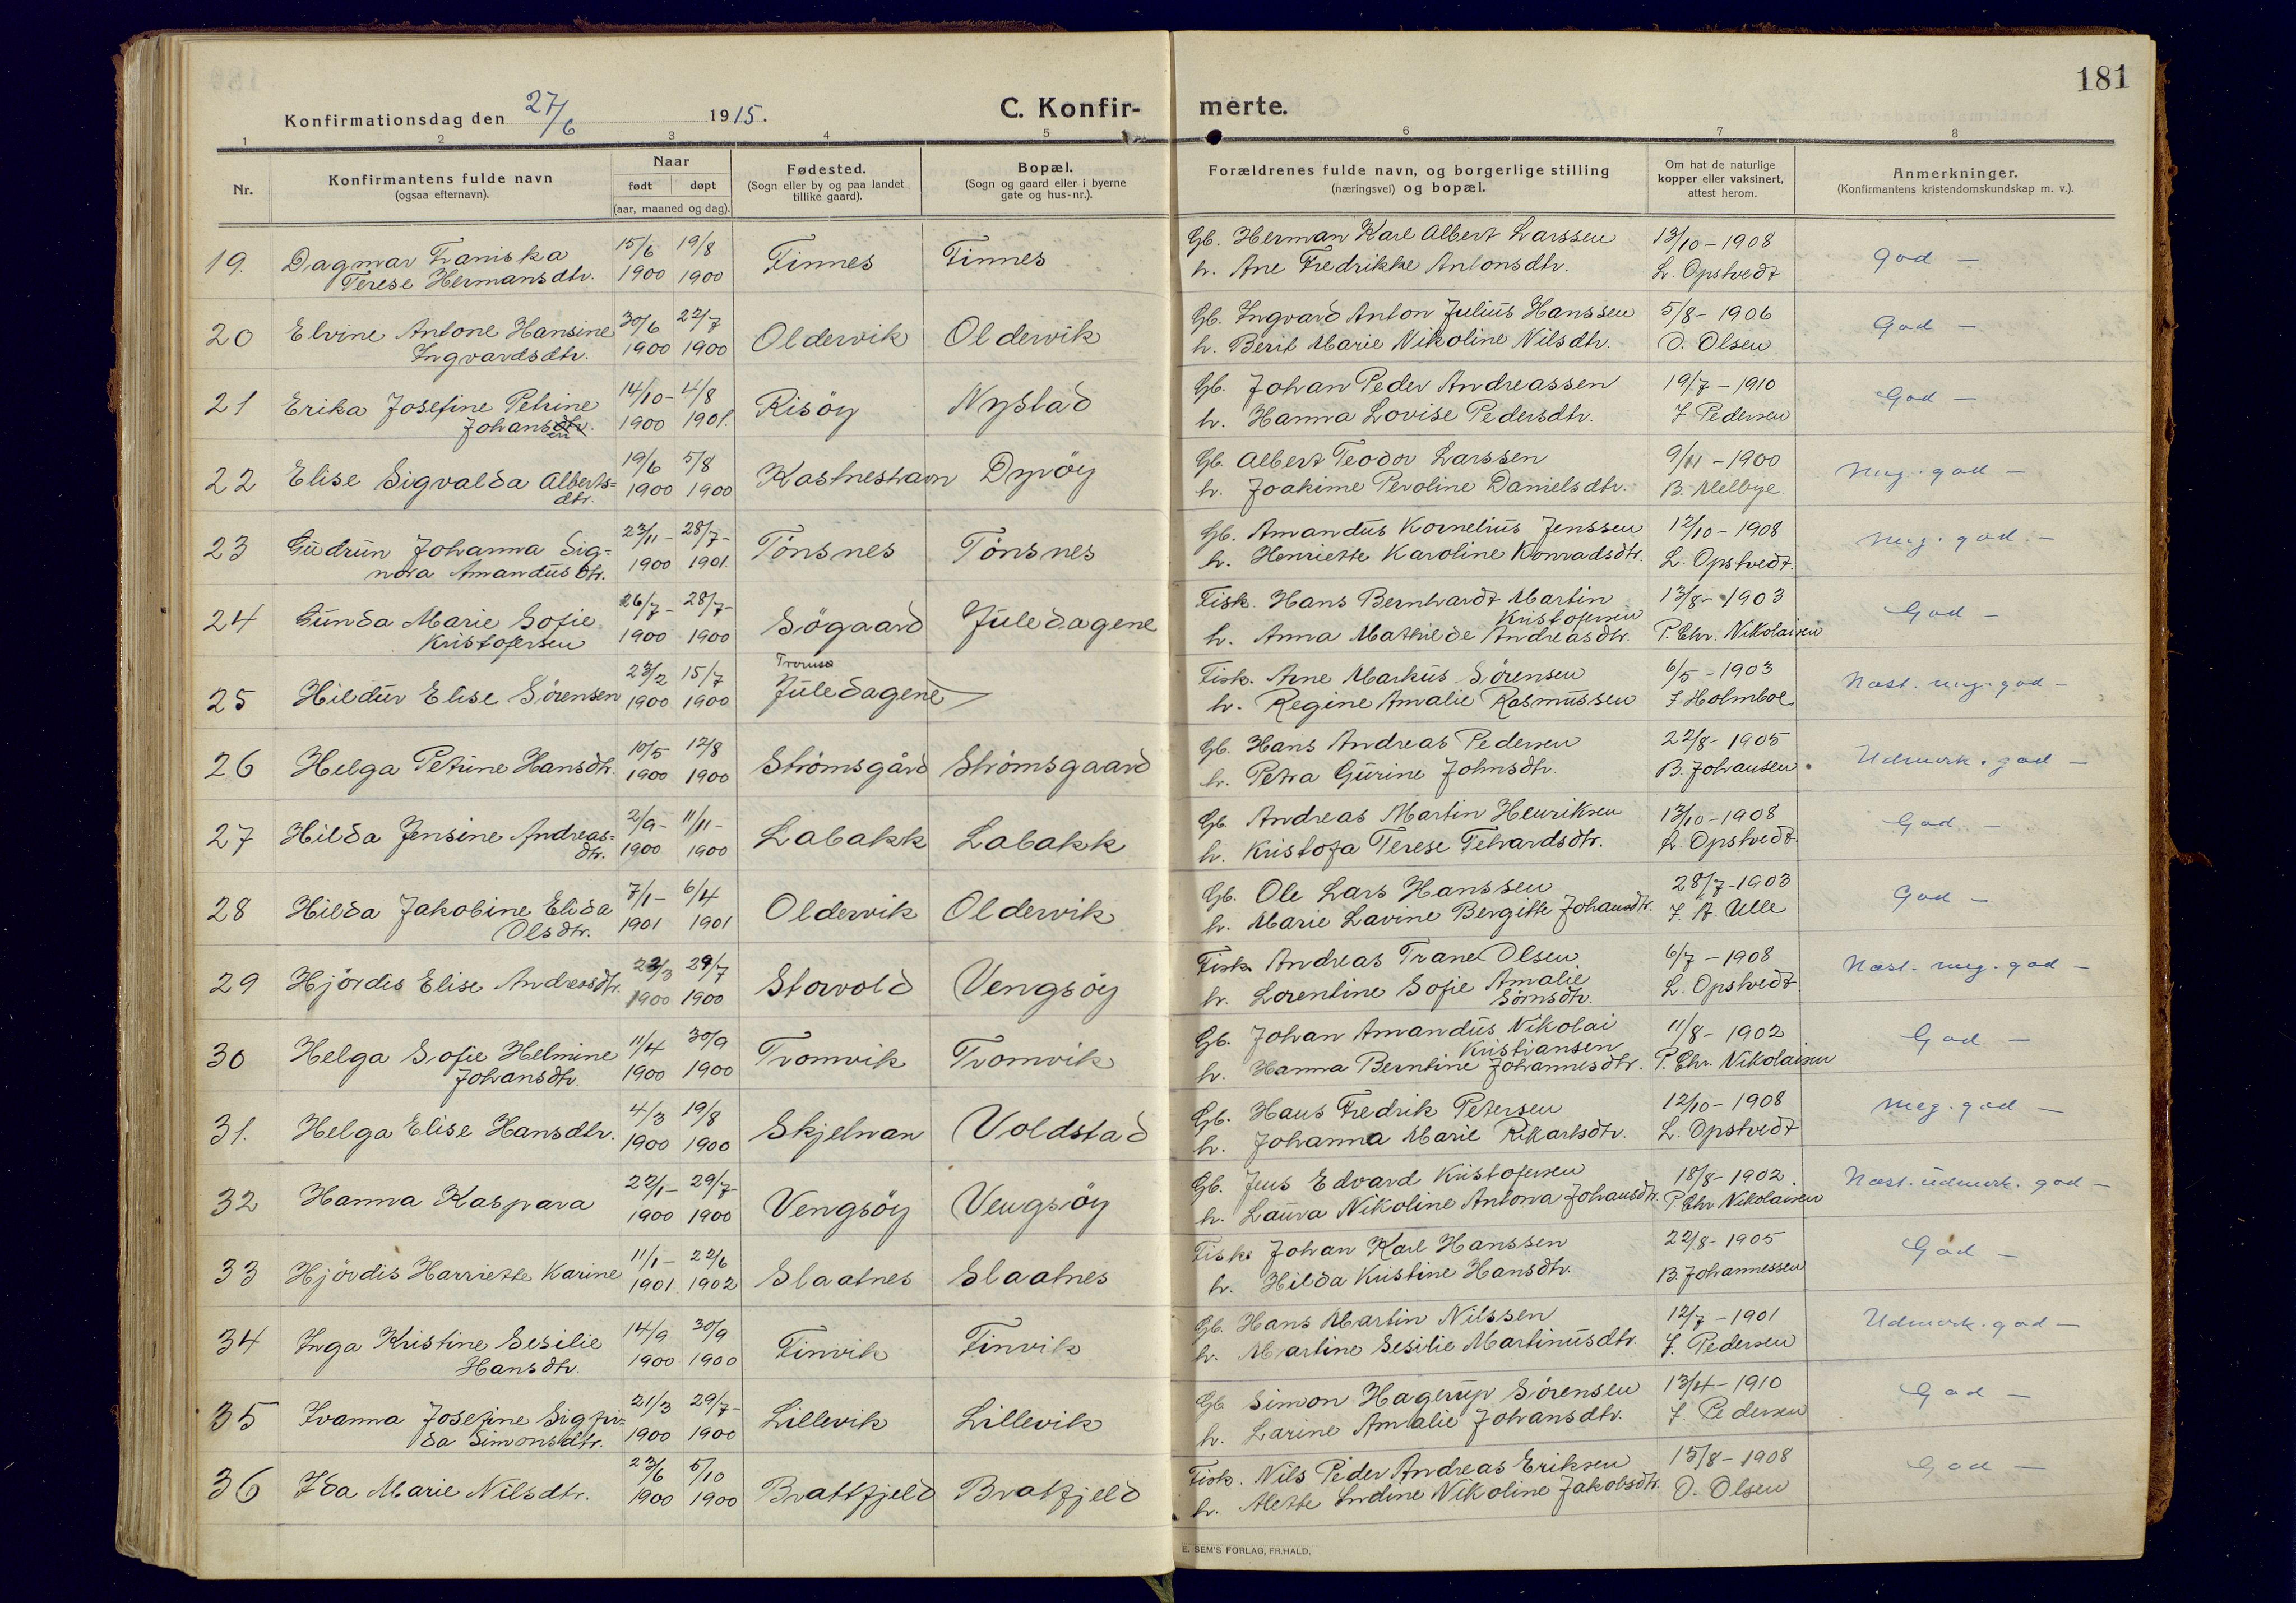 181
Konfirmationsdag den 27/6 1915.
C. Konfir-
merte.
1 2 3 4 5 6 7 8
Nr.
Konfirmantens fulde navn
(ogsaa efternavn).
Naar
født døpt
(aar, maaned og dag).
Fødested.
(Sogn eller by og paa landet
tillike gaard).
Bopæl.
(Sogn og gaard eller i byerne
gate og hus-nr.).
Forældrenes fulde navn, og borgerlige stilling
(næringsvei) og bopæl.
Om hat de naturlige
kopper eller vaksinert,
attest herom.
Anmerkninger.
(Konfirmantens kristendomskundskap m. v.).
19. Dagmar Franiska 15/6 19/8 Finnes Finnes Gb. Herman Karl Albert Larssen 13/10-1908 God -
Terese Hermansdtr. 1900 1900 h. Ane Fredrikke Antonsdtr. L. Opstvedt
20 Elvine Antone Hansine 30/6 22/7 Oldervik Oldervik Gb. Ingvard Anton Julius Hanssen 5/8-1906 God -
Ingvardsdtr. 1900 1900 h. Berit Marie Nikoline Nilsdtr. O. Olsen
21 Erika Josefine Petrine 14/10- 4/8 Risöy Nystad Gb. Johan Peder Andreassen 19/7-1910 God -
Johansdtr. en 1900 1901. h. Hanna Lovise Pedersdtr. J. Pedersen
22 Elise Sigvalda Alberts= 19/6 5/8 Kastneshavn Dyröy Gb. Albert Teodor Larssen 9/11-1900 Meg. god -
dtr. 1900 1900 h. Joakime Peroline Danielsdtr. B. Melbye
23 Gudrun Johanna Sig= 23/11- 28/7- Tönsnes Tönsnes Gb. Amandus Kornelius Jenssen 12/10-1908 Meg. god. -
nora Amandusdtr. 1900 1901. h. Henriette Karoline Konradsdtr. L. Opstvedt.
24 Gunda Marie Sofie 26/7- 28/7- Sögaard Juledagene Fisk. Hans Bernhardt Martin 13/8-1903 God -
Kristofersen 1900 1900 Kristofersen
h. Anna Mathilde Andreasdtr. P. Chr. Nikolaisen
25 Hildur Elise Sörensen 23/2 15/7 Tromsö Fisk. Arne Markus Sörensen 6/5-1903 Næst. meg. god -
1900 1900 Juledagene h. Regine Amalie Rasmussen J Holmboe
26 Helga Petrine Hansdtr. 10/5 12/8 Strömsgård Strömsgaard Gb. Hans Andreas Pedersen 22/8-1905 Udmerk. god -
1900 1900 h. Petra Gurine Johnsdtr. B. Johansen.
27 Hilda Jensine Andreas= 2/9- 11/11- Labakk Labakk Gb. Andreas Martin Henriksen 13/10-1908 God -
dtr. 1900 1900 h. Kristofa Terese Tetvardsdtr. L. Opstvedt.
28 Hilda Jakobine Elida 7/1- 6/4 Oldervik Oldervik Gb. Ole Lars Hanssen 28/7-1903 God -
Olsdtr. 1901 1901 h. Marie Lavine Bergitte Johansdtr. J. A. Ulle
29 Hjördis Elise Andreasdtr. 22/3 29/7 Storvold Vengsöy Fisk. Andreas Trane Olsen 6/7-1908 Næst. meg. god -
1900 1900 h. Lorentine Sofie Amalie L. Opstvedt
Sörnsdtr.
30 Helga Sofie Helmine 11/4 30/9 Tromvik Tromvik Gb. Johan Amandus Nikolai 11/8-1902 God -
Johansdtr. 1900 1900 Kristiansen
h. Hanna Berntine Johannesdtr. P. Chr. Nikolaisen
31. Helga Elise Hansdtr. 4/3 19/8 Skjelnan Voldstad Gb. Hans Fredrik Petersen 12/10-1908 Meg. god -
1900 1900 h. Johanna Marie Rikartsdtr. L. Opstvedt
32 Hanna Kaspara 22/1- 29/7- Vengsöy Vengsöy Gb. Jens Edvard Kristofersen 18/8-1902. Næst. udmerk. god -
1900 1900 h. Laura Nikoline Antona Johansdtr. P. Chr Nikolaisen
33 Hjördis Harriette Karine 11/1- 22/6 Slaatnes Slaatnes Fisk. Johan Karl Hanssen 22/8-1905 God -
1901. 1902 h. Hilda Kristine Hansdtr. B. Johannessen
34 Inga Kristine Sesilie 14/9 30/9 Finvik Finvik Gb. Hans Martin Nilssen 12/7-1901 Udmerk. god -
Hansdtr. 1900 1900 h. Martine Sesilie Martinusdtr. J. Pedersen
35 Ivanna Josefine Sigfri= 21/3 29/7- Lillevik Lillevik Gb Simon Hagerup Sörensen 13/4-1910 God -
da Simonsdtr. 1900 1900 h. Larine Amalie Johansdtr. J. Pedersen
36 Ida Marie Nilsdtr. 23/6 5/10 Brattfjeld Bratfjeld Fisk. Nils Peder Andreas Eriksen 15/8-1908 God -
1900 1900 h. Alette Nikoline Jakobsdtr. O. Olsen
E. SEM'S FORLAG, FR.HALD.